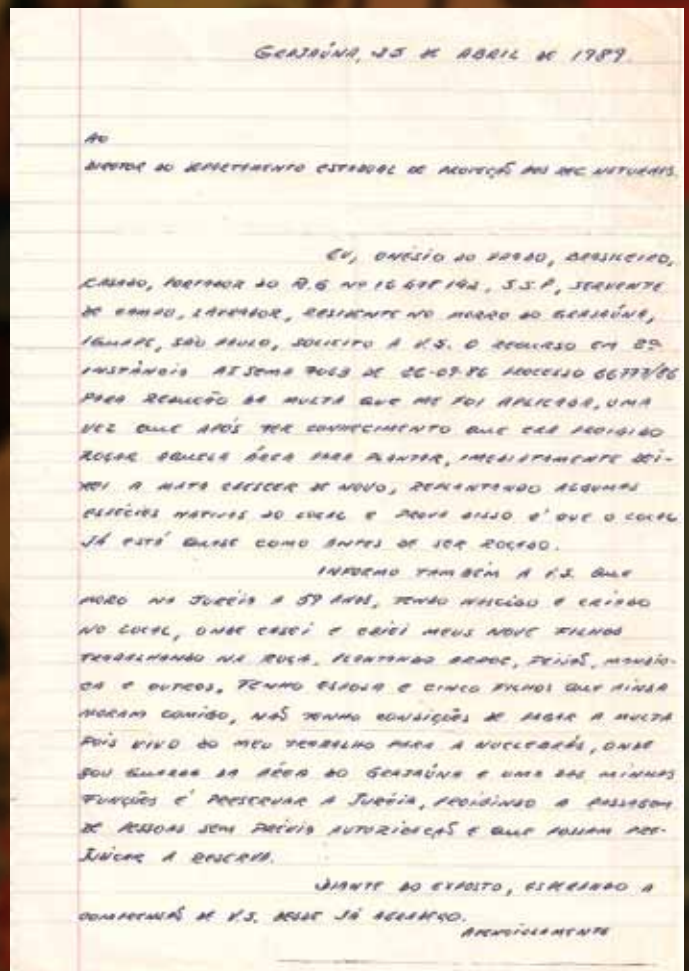 GRAJAÚNA, 25 DE ABRIL DE 1989.
AO
DIRETOR DO DEPARTAMENTO ESTADUAL DE PROTEÇÃO DOS REC. NATURAIS.
EU, ONÉSIO DO PRADO, BRASILEIRO,
CASADO, PORTADOR DO R.G Nº S.S.P, SERVENTE
DE CAMPO, LAVRADOR, RESIDENTE NO MORRO DO GRAJAÚNA,
IGUAPE, SÃO PAULO, SOLICITO A V.S. O RECURSO EM 2ª
INSTÂNCIA DE 26-09-86 PROCESSO 66777/86
PARA REDUÇÃO DA MULTA QUE ME FOI APLICADA, UMA
VEZ QUE APÓS TER CONHECIMENTO QUE ERA PROIBIDO
ROÇAR AQUELA ÁREA PARA PLANTAR, IMEDIATAMENTE DEI-
XEI A MATA CRESCER DE NOVO, REPLANTANDO ALGUMAS
ESPÉCIES NATIVAS DO LOCAL E PROVA DISSO É QUE O LOCAL
JÁ ESTÁ QUASE COMO ANTES DE SER ROÇADO.
INFORMO TAMBÉM A V.S. QUE
MORO NA JURÉIA A 59 ANOS, TENDO NASCIDO E CRIADO
NO LOCAL, ONDE CASEI E CRIEI MEUS NOVE FILHOS
TRABALHANDO NA ROÇA, PLANTANDO ARROZ, FEIJÃO, MANDIO-
CA E OUTROS, TENHO ESPOSA E CINCO FILHOS QUE AINDA
MORAM COMIGO, NÃO TENHO CONDIÇÕES DE PAGAR A MULTA
POIS VIVO DO MEU TRABALHO PARA A NUCLEBRÁS, ONDE
SOU GUARDA DA ÁREA DO GRAJAÚNA E UMA DAS MINHAS
FUNÇÕES É PRESERVAR A JURÉIA, PROIBINDO A PASSAGEM
DE PESSOAS SEM PRÉVIA AUTORIZAÇÃO E QUE POSSAM PRE-
JUDICAR A RESERVA.
DIANTE DO EXPOSTO, ESPERANDO A
COMPREENSÃO DE V.S. DESDE JÁ AGRADEÇO.
ATENCIOSAMENTE